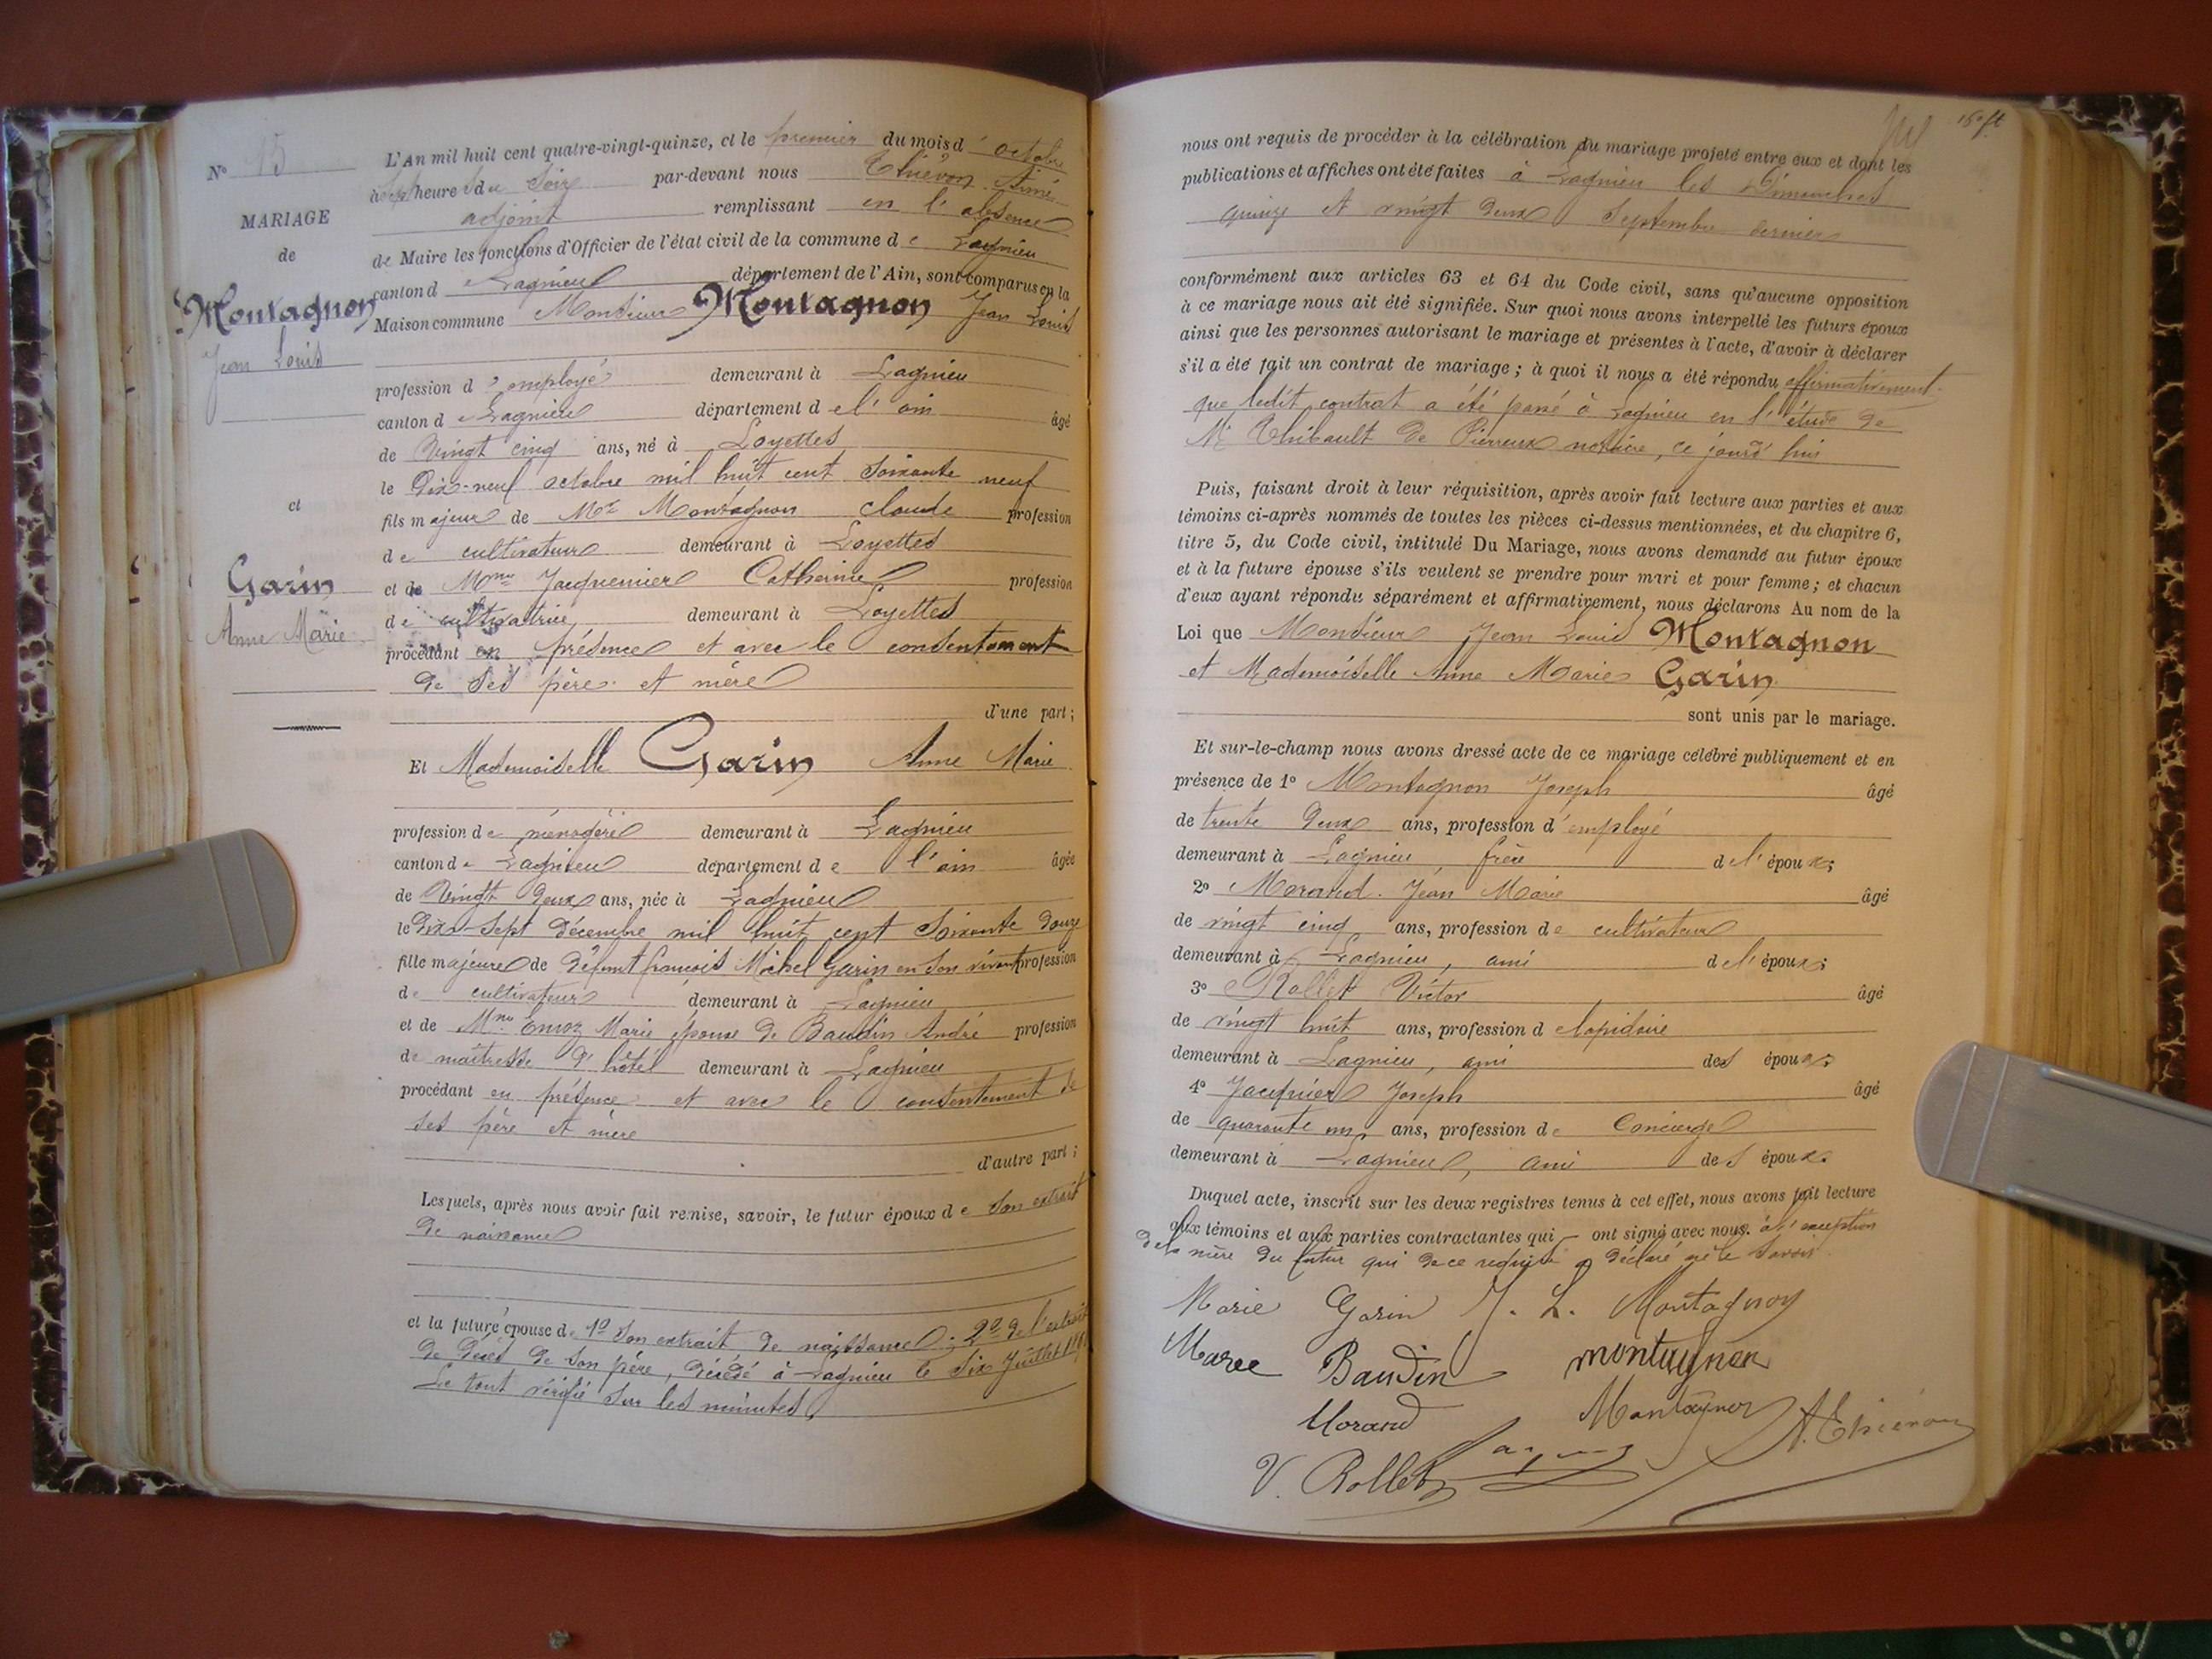 N° 15
MARIAGE
de
Montagnon
Jean Louis
et
Garin
Anne Marie
L'An mil huit cent quatre-vingt-quinze, et le premier du mois d'octobre
à sept heures du soir par-devant nous Thiévon Aimé
adjoint remplissant en l'absence
de Maire les fonctions d'Officier de l'état civil de la commune de Lagnieu
canton de Lagnieu département de l'Ain, sont comparus en la
Maison commune Monsieur Montagnon Jean Louis
profession d'employé demeurant à Lagnieu
canton de Lagnieu département de l'ain âgé
de Vingt cinq ans, né à Loyettes
le Dix-neuf octobre mil huit cent soixante neuf
fils majeur de Mr Montagnon claude profession
de cultivateur demeurant à Loyettes
et de Mme Jacquemier Catherine profession
de cultivatrice demeurant à Loyettes
procédant en présence et avec le consentement
de ses père et mère
d'une part;
Et Mademoiselle Garin Anne Marie
profession de ménagère demeurant à Lagnieu
canton de Lagnieu département de l'ain âgée
de Vingt deux ans, née à Lagnieu
le dix-sept décembre mil huit cent soixante douze
fille majeure de défunt françois Michel Garin en son vivant profession
de cultivateur demeurant à Lagnieu
et de Mme Marie épouse de Baudin André profession
de maîtresse d'hôtel demeurant à Lagnieu
procédant en présence et avec le consentement de
ses père et mère
d'autre part;
Lesquels, après nous avoir fait remise, savoir, le futur époux de son extrait
de naissance
et la future épouse de 1° son extrait de naissance; 2° de l'extrait
de décès de son père, décédé à Lagnieu le six Juillet
Le tout vérifié sur les minutes
nous ont requis de procéder à la célébration du mariage projeté entre eux et dont les
publications et affiches ont été faites à Lagnieu les Dimanches
quinze et vingt deux Septembre dernier
conformément aux articles 63 et 64 du Code civil, sans qu'aucune opposition
à ce mariage nous ait été signifiée. Sur quoi nous avons interpellé les futurs époux
ainsi que les personnes autorisant le mariage et présentes à l'acte, d'avoir à déclarer
s'il a été fait un contrat de mariage; à quoi il nous a été répondu affirmativement
que ledit contrat a été passé à Lagnieu en l'étude de
Me Thibault de Pierreux notaire, ce jourd'hui
Puis, faisant droit à leur réquisition, après avoir fait lecture aux parties et aux
témoins ci-après nommés de toutes les pièces ci-dessus mentionnées, et du chapitre 6,
titre 5, du Code civil, intitulé Du Mariage, nous avons demandé au futur époux
et à la future épouse s'ils veulent se prendre pour mari et pour femme; et chacun
d'eux ayant répondu séparément et affirmativement, nous déclarons Au nom de la
Loi que Monsieur Jean Louis Montagnon
et Mademoiselle Anne Marie Garin
sont unis par le mariage.
Et sur-le-champ nous avons dressé acte de ce mariage célébré publiquement et en
présence de 1° Montagnon Joseph âgé
de trente deux ans, profession d'employé
demeurant à Lagnieu, frère de l'époux;
2° Morand Jean Marie âgé
de vingt cinq ans, profession de cultivateur
demeurant à Lagnieu, ami de l'époux;
3° Rollet Victor âgé
de vingt huit ans, profession de lapidaire
demeurant à Lagnieu, ami des époux;
4° Jacquier Joseph âgé
de quarante un ans, profession de Concierge
demeurant à Lagnieu, ami des époux.
Duquel acte, inscrit sur les deux registres tenus à cet effet, nous avons fait lecture
aux témoins et aux parties contractantes qui ont signé avec nous. à l'exception
de la mère du futur qui de ce requise a déclaré ne le savoir.
Marie Garin J. L. Montagnon
Marie Baudin montagnon
Morand Montagnon A. Thiévon
V. Rollet